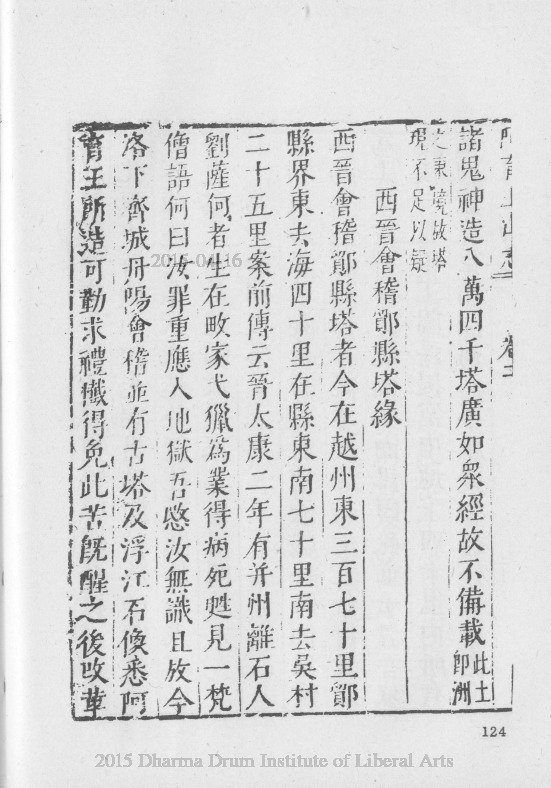 阿育王山志 卷二
諸鬼神造八萬四千塔廣如衆經故不備載此土即洲
之東境故塔現不足以疑
西晉會稽鄮縣塔緣
西晉會稽鄮縣塔者今在越州東三百七十里鄮
縣界東去海四十里在縣東南七十里南去吳村
二十五里案前傳云晉太康二年有并州離石人
劉薩何者生在畋家弋獵爲業得病死甦見一梵
僧語何曰汝罪重應入地獄吾愍汝無識且放今
洛下齊城丹陽會稽並有古塔及浮江石像悉阿
育王所造可勤求禮懺得免此苦旣醒之後改革
124
2015-04-16
2015 Dharma Drum Institute of Liberal Arts